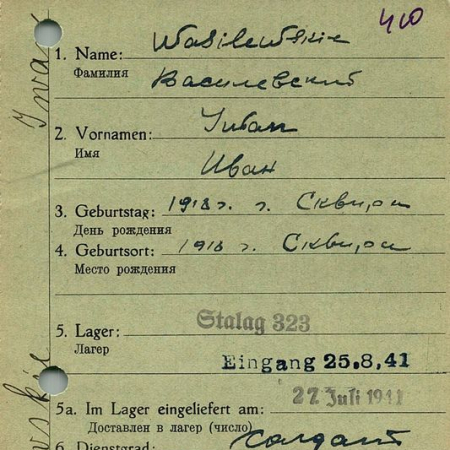 410
1. Name: Wasilewskie
Фамилия Василевский
2. Vornamen: Iwan
Имя
Иван
3. Geburtstag: 1918 г. г. Сквира
День рождения
4. Geburtsort: 1918 г. Сквира
Место рождения
5. Lager: Stalag 323
Лагер
Eingang 25.8.41
27 Juli 1941
5a. Im Lager eingeliefert am:
Доставлен в лагер (число)
6. Dienstgrad: солдат